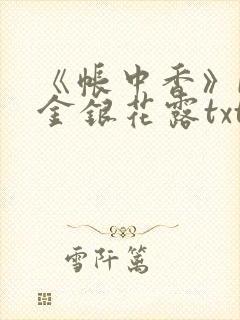 《帐中香》
金银花露txt
雪阡篱